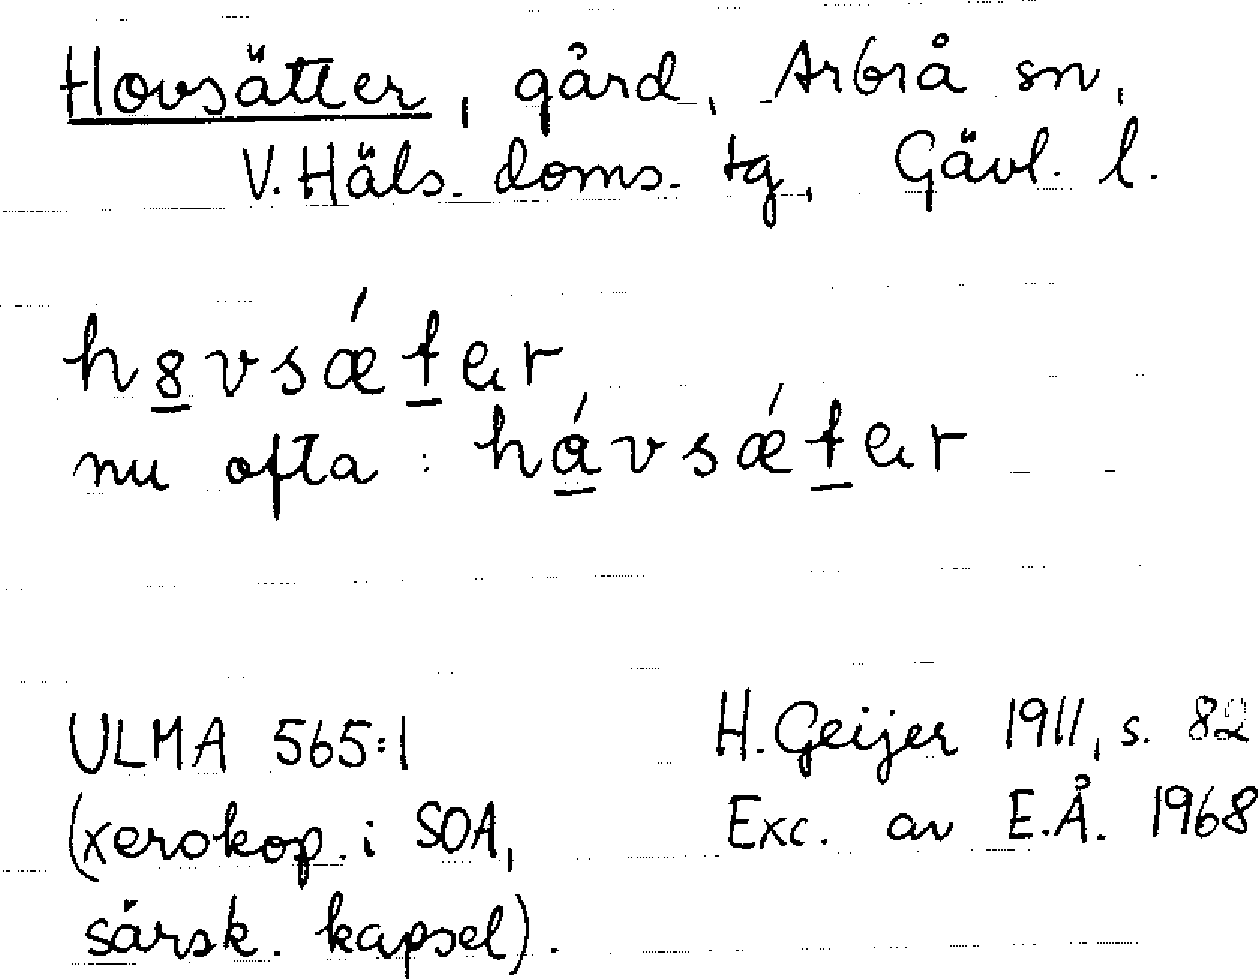 Hovsätter, gård, Arbrå sn,
V. Häls. doms. tg, Gävl. l.
h8vsǽter
nu ofta: hávsǽter
ULMA 565:1
H. Geijer 1911, s. 82
(xerokop. i SOA,
Exc. av E.Å. 1968
särsk. kapsel).